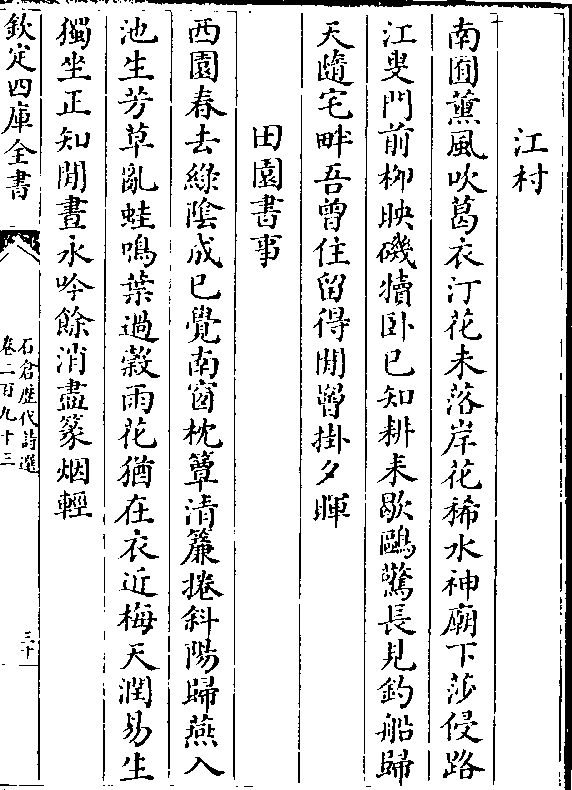 江村
南囿薰風吹葛衣汀花未落岸花稀水神廟下莎侵路
江叟門前柳映磯犢卧已知耕耒歇鷗驚長見釣船歸
天隨宅畔吾曾住留得閒罾掛夕暉
田園書事
西園春去綠陰成已覺南窗枕簟清簾捲斜陽歸燕入
池生芳草亂蛙鳴葉過穀雨花猶在衣近梅天潤易生
獨坐正知閒晝永吟餘消盡篆烟輕
欽定四庫全書
石倉歴代詩選
卷二百九十三
三十